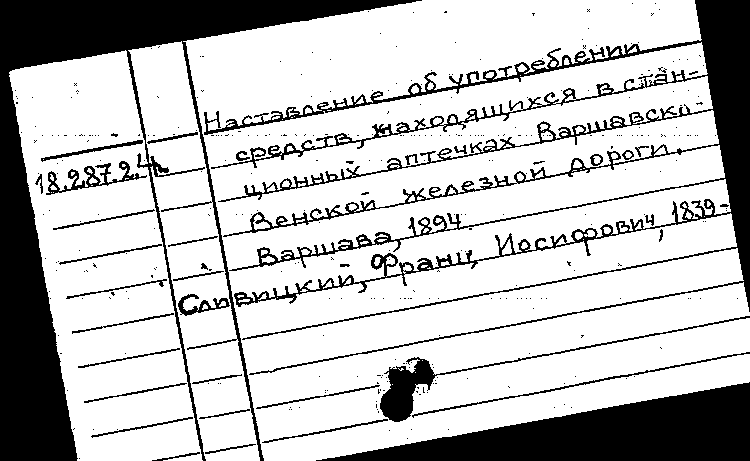 Наставление об употреблении
средств, находящихся в стан-
18.287.2.4
ционных аптечках Варшавско-
Венской железной дороги.
Варшава, 1894.
Сливицкий, Франц Иосифович, 1839-